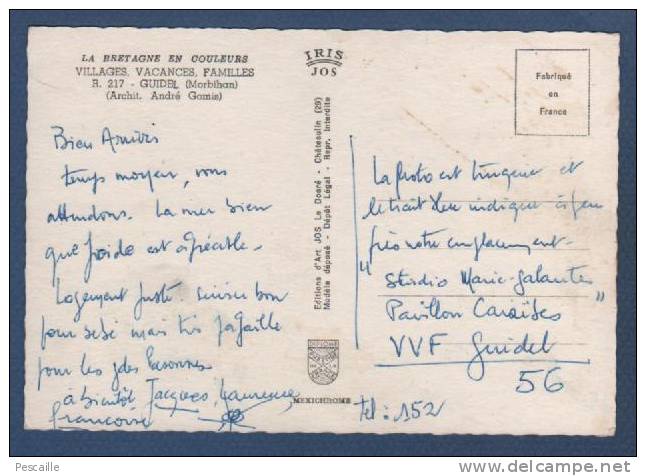 LA BRETAGNE EN COULEURS
VILLAGES, VACANCES, FAMILLES
R. 217 - GUIDEL (Morbihan)
(Archit. André Gomis)
Bien Arrivés
temps moyen, vous
attendons. La mer bien
que froide est agréable.
Logement juste suisu bon
pour bébé mais très pagaille
pour les gdes personnes
à bientôt Jacques Laurence
Françoise
IRIS
JOS
Editions d'Art JOS Le Doaré - Châteaulin (29)
Modèle déposé - Dépôt Légal - Repr. Interdite
MEXICHROME
Fabriqué
en
France
La photo est trompeuse et
le trait bleu indique à peu
près notre emplacement -
"Studio Marie-Galante"
Pavillon Caraïbes
VVF Guidel
56
tel : 152
Pescaille
http://www.delcampe.net